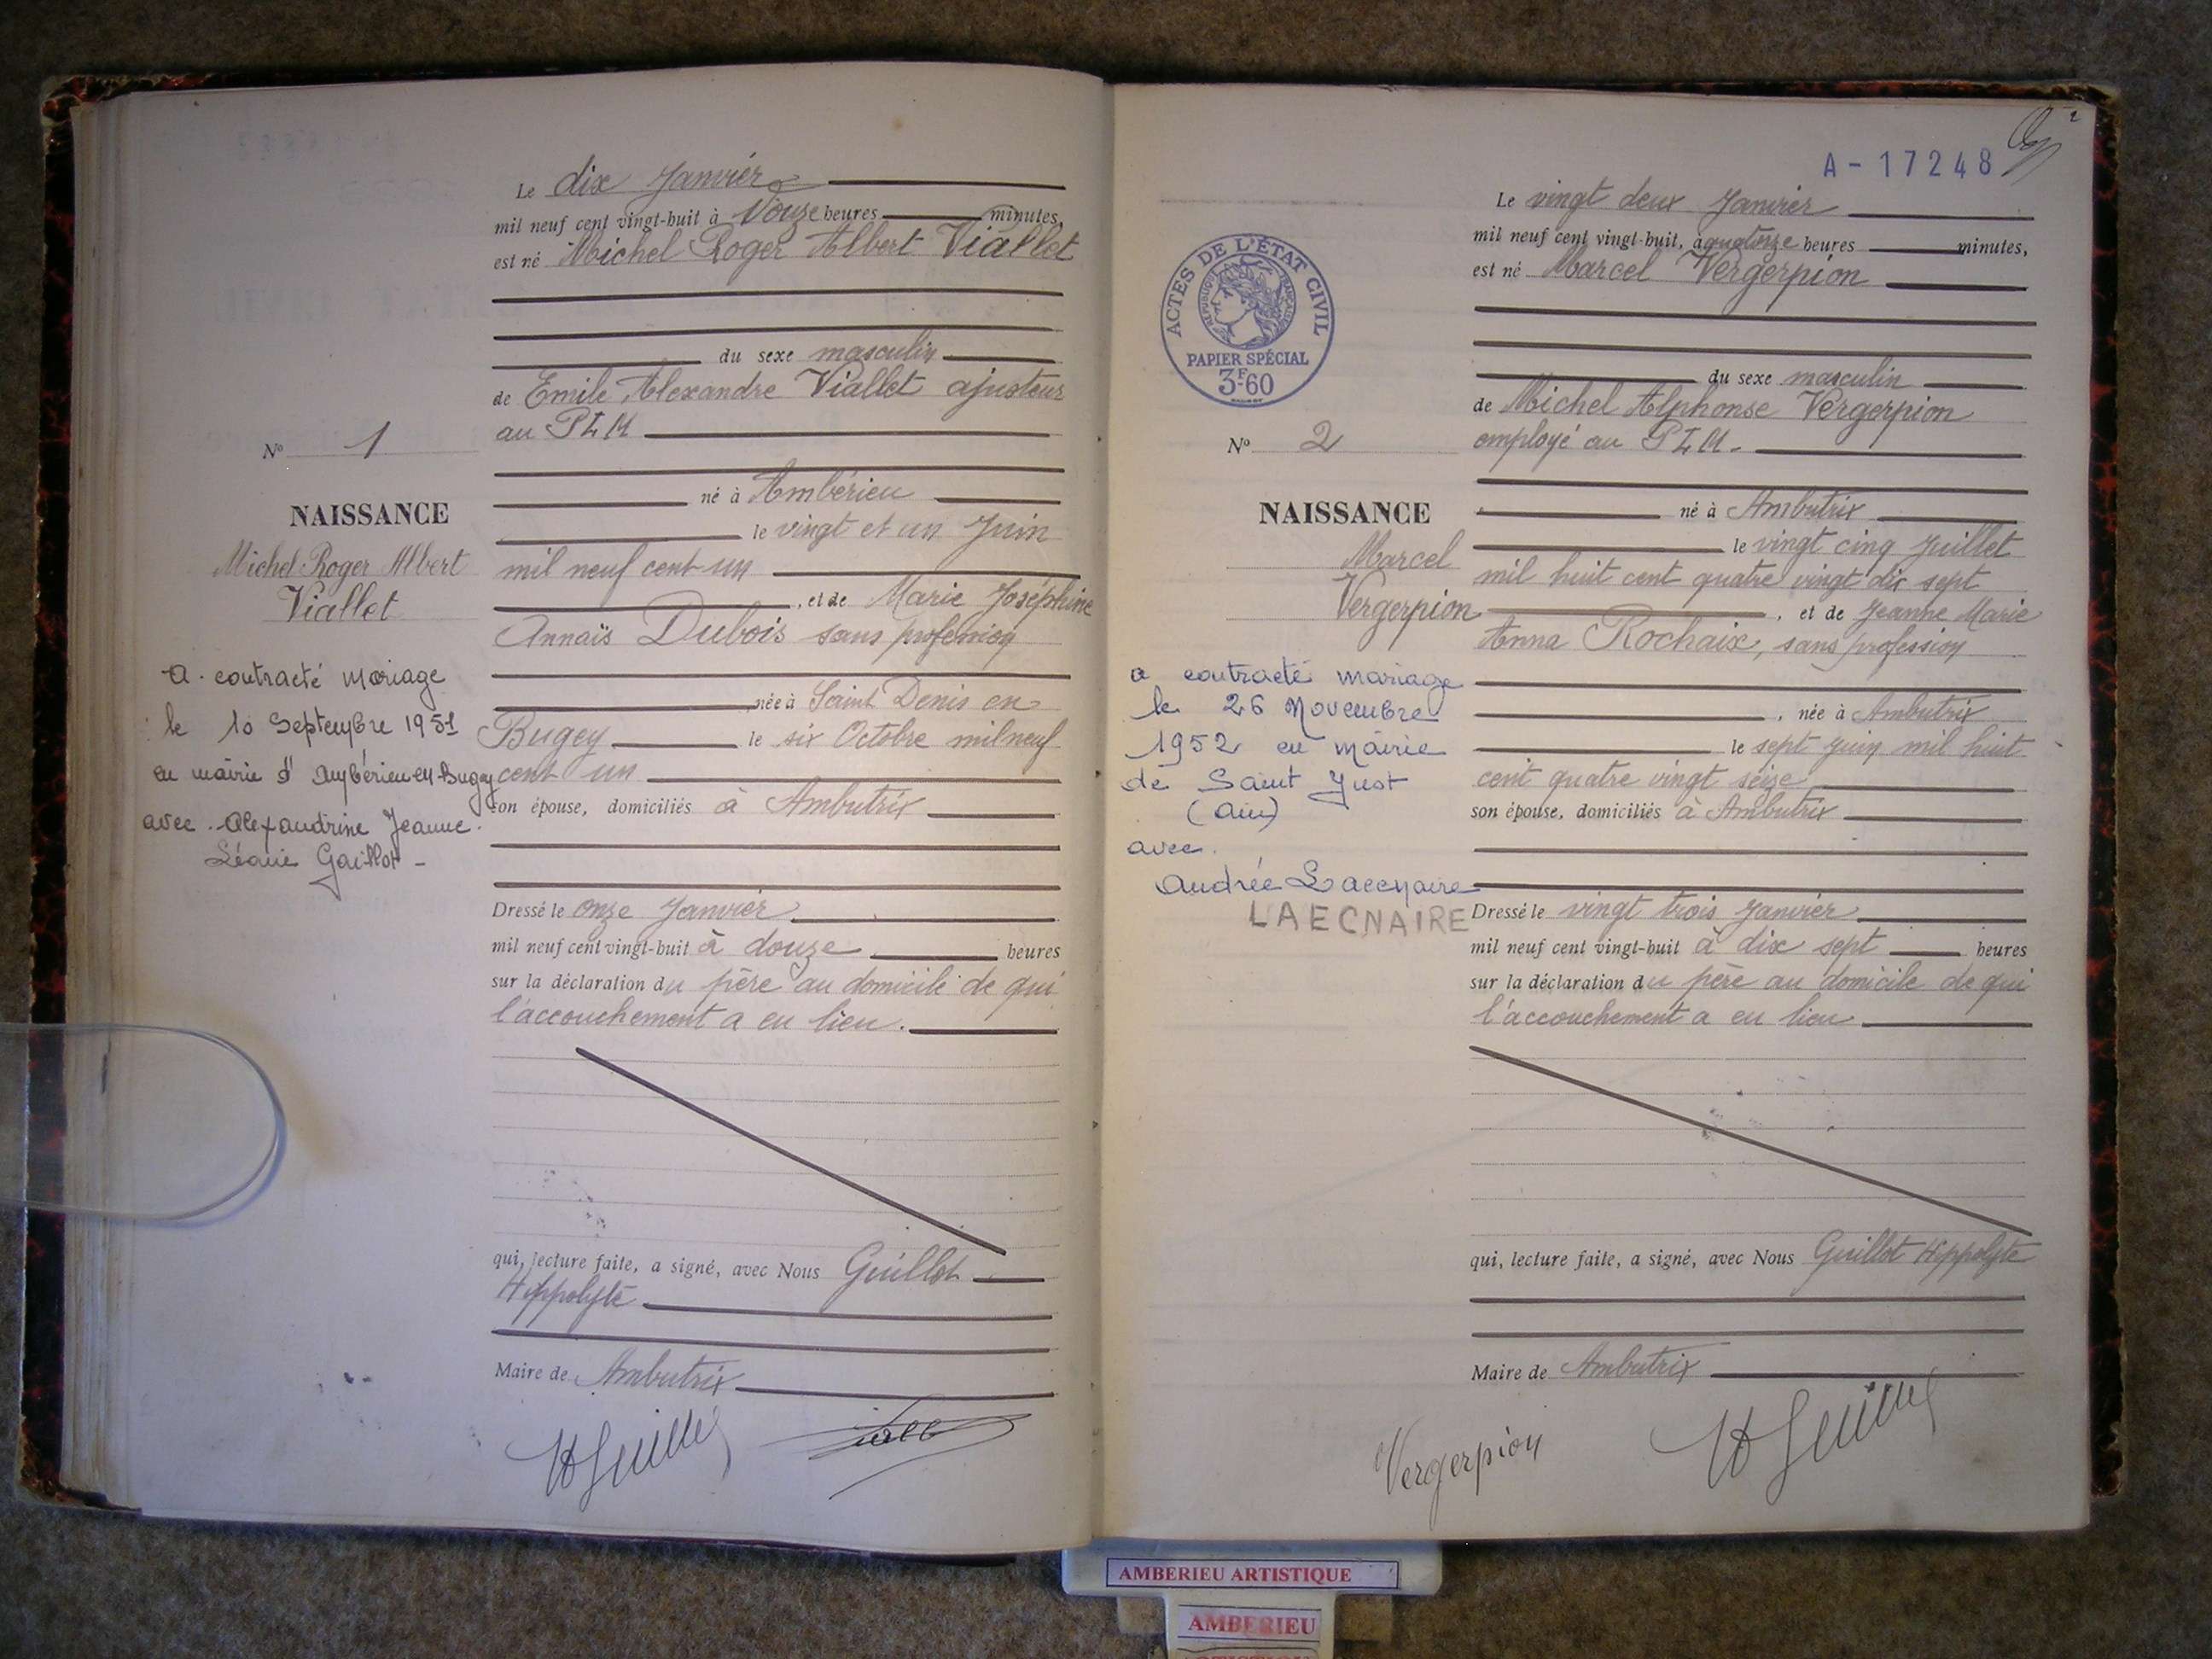 Le dix Janvier
mil neuf cent vingt-huit à Douze heures minutes,
est né Michel Roger Albert Viallet
du sexe masculin
de Emile Alexandre Viallet ajusteur
au PLM
né à Ambérieu
le vingt et un Juin
mil neuf cent un
, et de Marie Joséphine
Annaïs Dubois sans profession
née à Saint Denis en
Bugey le six Octobre mil neuf
cent un
son épouse, domiciliés à Ambutrix
Dressé le onze Janvier
mil neuf cent vingt-huit à douze heures
sur la déclaration du père au domicile de qui
l'accouchement a eu lieu.
qui, lecture faite, a signé, avec Nous Guillot
Hippolyte
Maire de Ambutrix
N° 1
NAISSANCE
Michel Roger Albert
Viallet
a contracté mariage
le 10 Septembre 1951
en mairie d'Ambérieu en Bugey
avec Alexandrine Jeanne
Léonie Gaillot -
A-17248
2
Le vingt deux Janvier
mil neuf cent vingt-huit, à quatorze heures minutes,
est né Marcel Vergerpion
du sexe masculin
de Michel Alphonse Vergerpion
employé au PLM.
né à Ambutrix
le vingt cinq Juillet
mil huit cent quatre vingt dix sept
, et de Jeanne Marie
Anna Rochaix, sans profession
, née à Ambutrix
le sept Juin mil huit
cent quatre vingt seize
son épouse, domiciliés à Ambutrix
Dressé le vingt trois Janvier
mil neuf cent vingt-huit à dix sept heures
sur la déclaration du père au domicile de qui
l'accouchement a eu lieu
qui, lecture faite, a signé, avec Nous Guillot Hippolyte
Maire de Ambutrix
Vergerpion
ACTES DE L'ÉTAT CIVIL
RÉPUBLIQUE FRANÇAISE
PAPIER SPÉCIAL
3F.60
N° 2
NAISSANCE
Marcel
Vergerpion
a contracté mariage
le 26 Novembre
1952 en mairie
de Saint Just
(Ain)
avec
Andrée Laecnaire
LAECNAIRE
AMBERIEU ARTISTIQUE
AMBERIEU
ARTISTIQUE